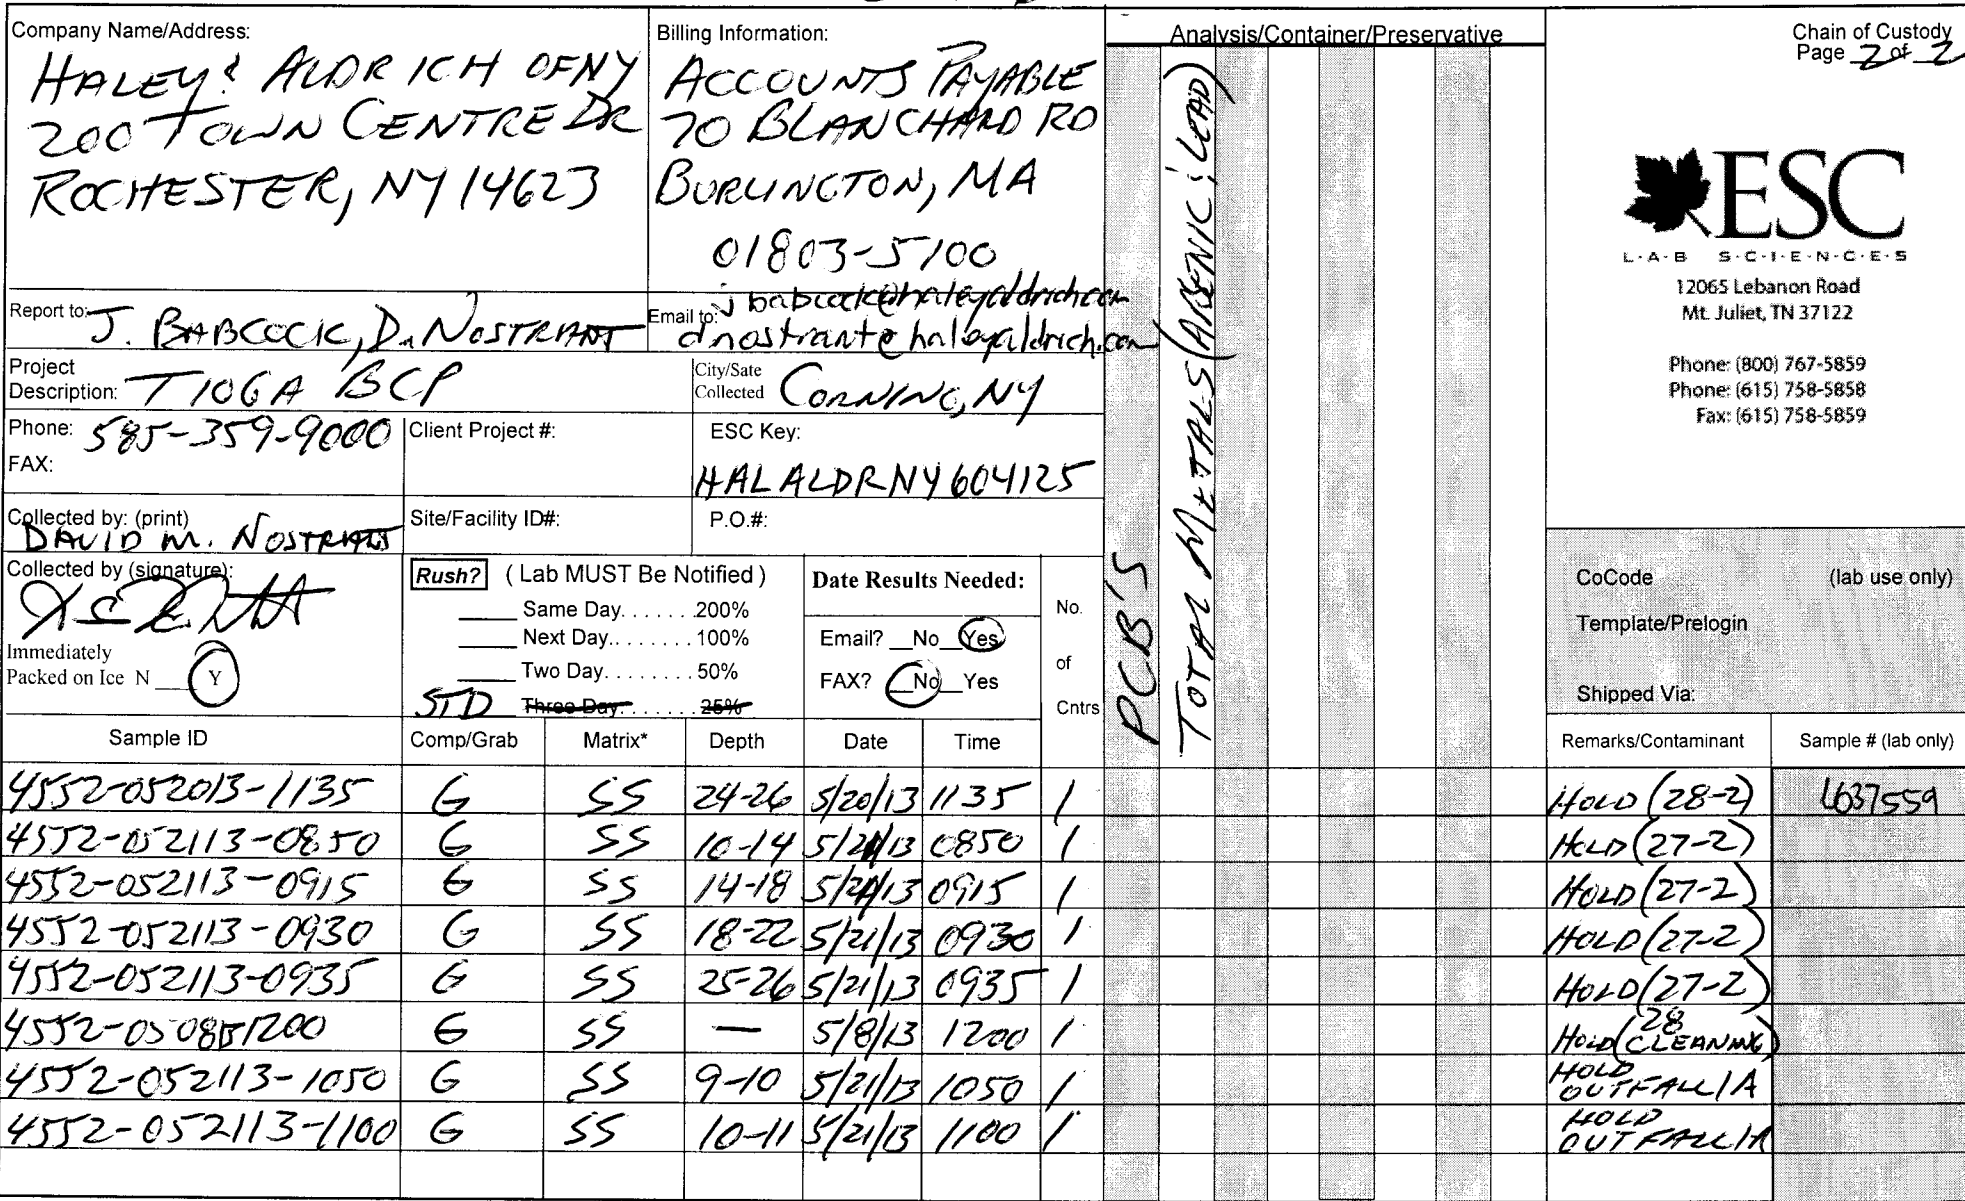 Company Name/Address:
HALEY & ALDRICH OF NY
200 TOWN CENTRE DR
ROCHESTER, NY 14623
Billing Information:
ACCOUNTS PAYABLE
70 BLANCHARD RD
BURLINGTON, MA
01803-5100
Analysis/Container/Preservative
Chain of Custody
Page 2 of 2
ESC
L·A·B S·C·I·E·N·C·E·S
12065 Lebanon Road
Mt. Juliet, TN 37122
Phone: (800) 767-5859
Phone: (615) 758-5858
Fax: (615) 758-5859
Report to: J. BABCOCK, D. NOSTRANT
Email to: jbabcock@haleyaldrich.com
dnostrant@haleyaldrich.com
Project
Description: TIOGA BCP
City/Sate
Collected CORNING, NY
Phone: 585-359-9000
FAX:
Client Project #:
ESC Key:
HALALDRNY604125
Collected by: (print)
DAVID M. NOSTRANT
Site/Facility ID#:
P.O.#:
Collected by (signature):
Immediately
Packed on Ice N Y
Rush? ( Lab MUST Be Notified )
Same Day. . . . . . .200%
Next Day.. . . . . . .100%
Two Day. . . . . . . . 50%
STD Three Day. . . . . . . 25%
Date Results Needed:
Email? No Yes
FAX? No Yes
No.
of
Cntrs
PCB'S
TOTAL METALS (ARSENIC & LEAD)
CoCode (lab use only)
Template/Prelogin
Shipped Via:
Sample ID Comp/Grab Matrix* Depth Date Time Remarks/Contaminant Sample # (lab only)
4552-052013-1135 G SS 24-26 5/20/13 1135 1 HOLD (28-2) L637559
4552-052113-0850 G SS 10-14 5/21/13 0850 1 HOLD (27-2)
4552-052113-0915 G SS 14-18 5/21/13 0915 1 HOLD (27-2)
4552-052113-0930 G SS 18-22 5/21/13 0930 1 HOLD (27-2)
4552-052113-0935 G SS 25-26 5/21/13 0935 1 HOLD (27-2)
G SS — 5/8/13 1200 1 HOLD (28 CLEANING)
4552-052113-1050 G SS 9-10 5/21/13 1050 1 HOLD OUTFALL 1A
4552-052113-1100 G SS 10-11 5/21/13 1100 1 HOLD OUTFALL 1A